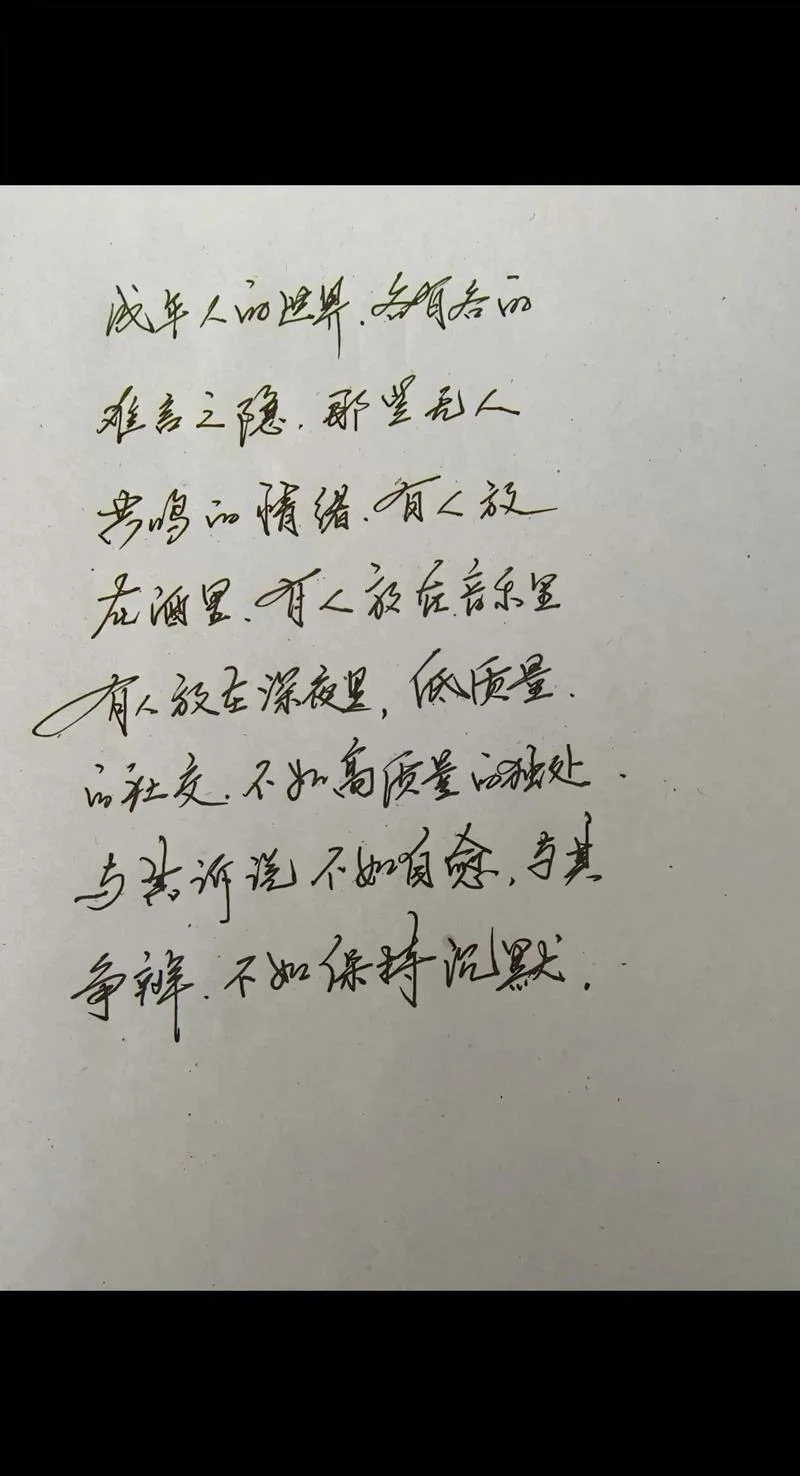 成年人的世界.各有各的
难言之隐.那些无人
共鸣的情绪.有人放
在酒里.有人放在音乐里
有人放在深夜里,低质量.
的社交.不如高质量的独处.
与其诉说不如自愈,与其
争辩.不如保持沉默.